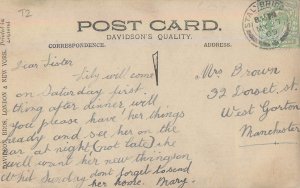 T2
POST CARD.
DAVIDSON'S QUALITY.
CORRESPONDENCE.
ADDRESS.
DAVIDSON BROS. LONDON & NEW YORK.
Dear Sister
Lily will come
on Saturday first
thing after dinner will
you please have her things
ready and see her on the
car at night (not late) she
will want her new things on
Whit Sunday dont forget to send
her home. Mary.
Mrs Brown
32 Dorset St
West Gorton
Manchester